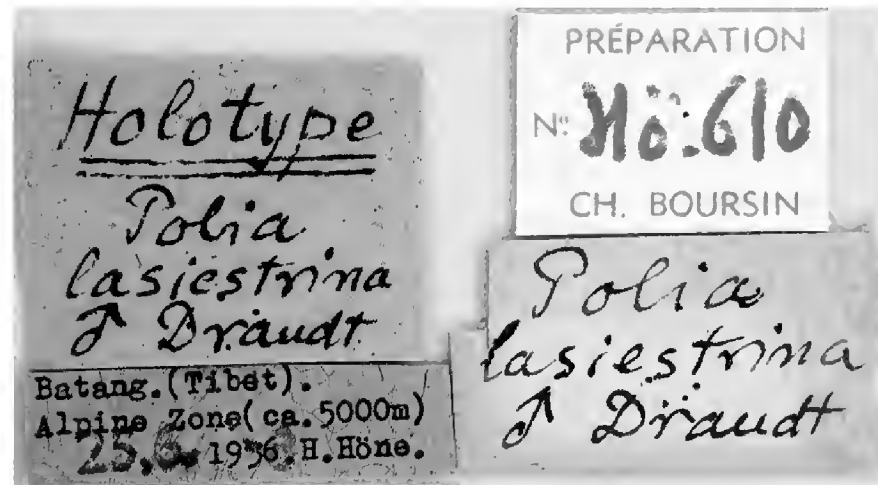 Holotype
Polia
lasiestrina
♂ Draudt
Batang.(Tibet).
Alpine Zone(ca.5000m)
25.6. 1936.H.Höne.
PRÉPARATION
N° Hö:610
CH. BOURSIN
Polia
lasiestrina
♂ Draudt